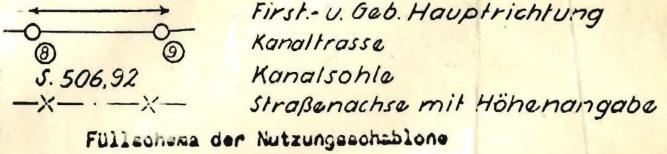 First- u. Geb. Hauptrichtung
Kanaltrasse
⑧ ⑨
S. 506,92 Kanalsohle
Straßenachse mit Höhenangabe
Füllschema der Nutzungsschablone